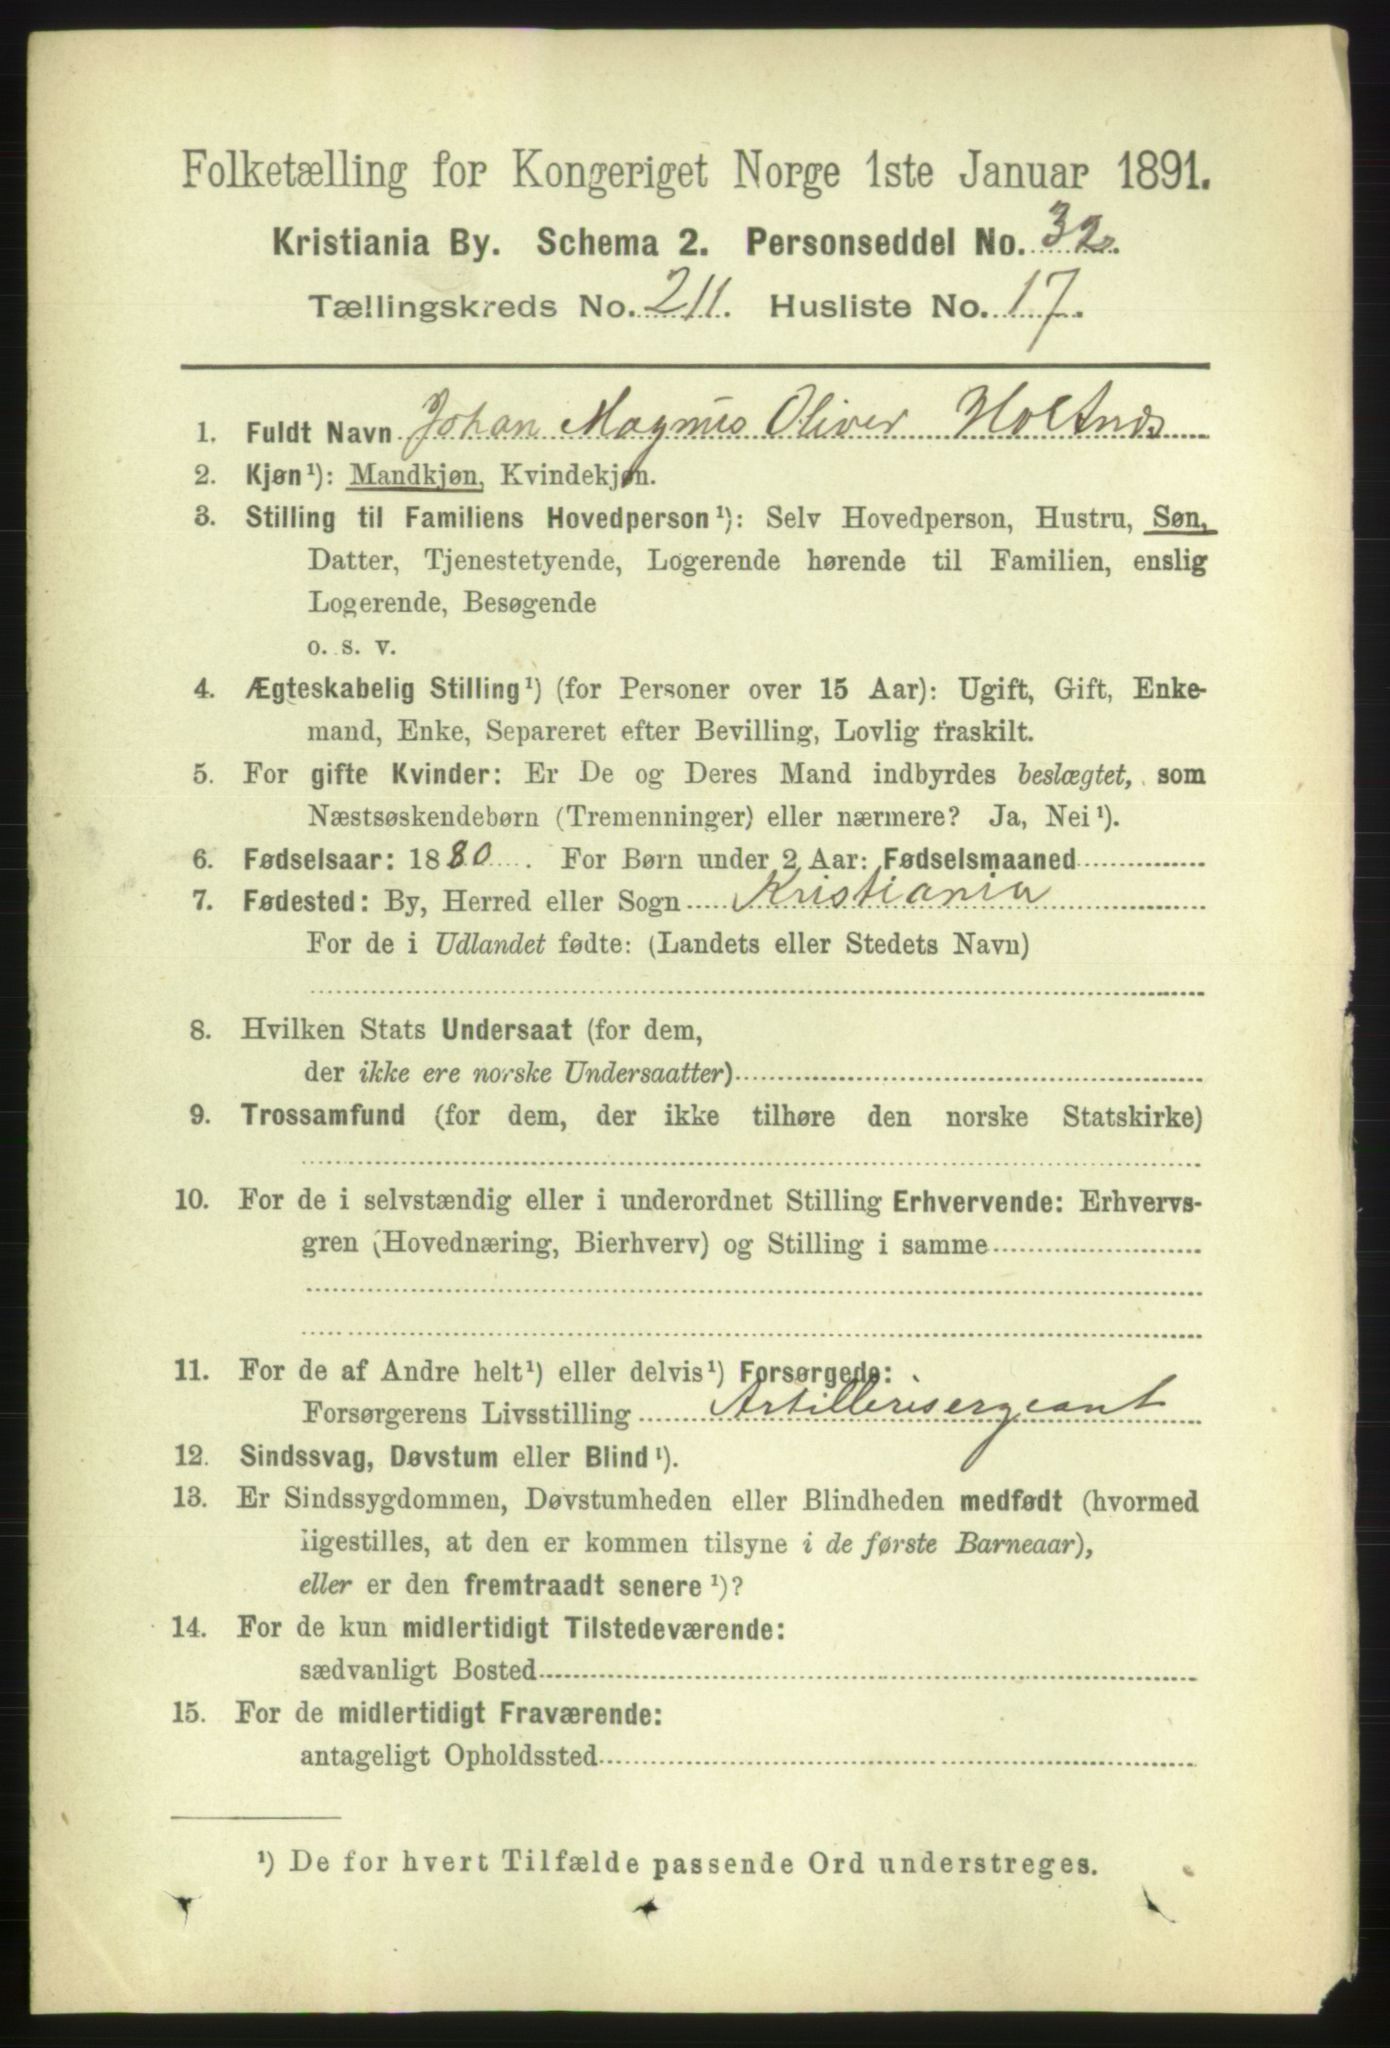 Folketælling for Kongeriget Norge 1ste Januar 1891.
Kristiania By. Schema 2. Personseddel No. 32.
Tællingskreds No. 211. Husliste No. 17.
1. Fuldt Navn Johan Magnus Oliver
2. Kjøn¹): Mandkjøn, Kvindekjøn.
3. Stilling til Familiens Hovedperson¹): Selv Hovedperson, Hustru, Søn,
Datter, Tjenestetyende, Logerende hørende til Familien, enslig
Logerende, Besøgende
o. s. v.
4. Ægteskabelig Stilling¹) (for Personer over 15 Aar): Ugift, Gift, Enke-
mand, Enke, Separeret efter Bevilling, Lovlig fraskilt.
5. For gifte Kvinder: Er De og Deres Mand indbyrdes beslægtet, som
Næstsøskendebørn (Tremenninger) eller nærmere? Ja, Nei¹).
6. Fødselsaar: 1880. For Børn under 2 Aar: Fødselsmaaned
7. Fødested: By, Herred eller Sogn Kristiania
For de i Udlandet fødte: (Landets eller Stedets Navn)
8. Hvilken Stats Undersaat (for dem,
der ikke ere norske Undersaatter)
9. Trossamfund (for dem, der ikke tilhøre den norske Statskirke)
10. For de i selvstændig eller i underordnet Stilling Erhvervende: Erhvervs-
gren (Hovednæring, Bierhverv) og Stilling i samme
11. For de af Andre helt¹) eller delvis¹) Forsørgede:
Forsørgerens Livsstilling Artillerisergeant
12. Sindssvag, Døvstum eller Blind¹).
13. Er Sindssygdommen, Døvstumheden eller Blindheden medfødt (hvormed
ligestilles, at den er kommen tilsyne i de første Barneaar),
eller er den fremtraadt senere¹)?
14. For de kun midlertidigt Tilstedeværende:
sædvanligt Bosted
15. For de midlertidigt Fraværende:
antageligt Opholdssted
¹) De for hvert Tilfælde passende Ord understreges.